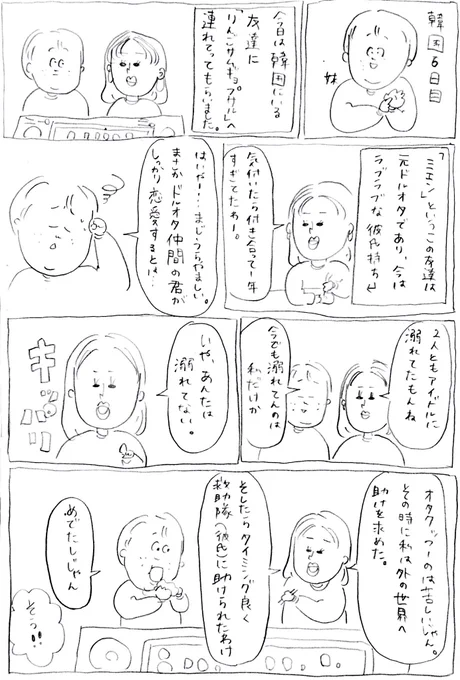 韓国6日目
妹
今日は韓国にいる
友達に
「りんごサムギョプサル」へ
連れてってもらいました。
ミエンというこの友達は
元ドルオタであり、今は
ラブラブな彼氏持ち
気付いたら付き合って一年
すぎてたわー。
はいやー…まじうらやましい。
まさかドルオタ仲間の君が
しっかり恋愛するとは…
2人ともアイドルに
溺れてたもんね
今でも溺れてんのは
私だけか
いや、あんたは
溺れてない。
キッパリ
オタクっつーのは苦しいじゃん。
その時に私は外の世界へ
助けを求めた。
そしたらタイミング良く
救助隊(彼氏)に助けられたわけ
めでたしじゃん
そう!!